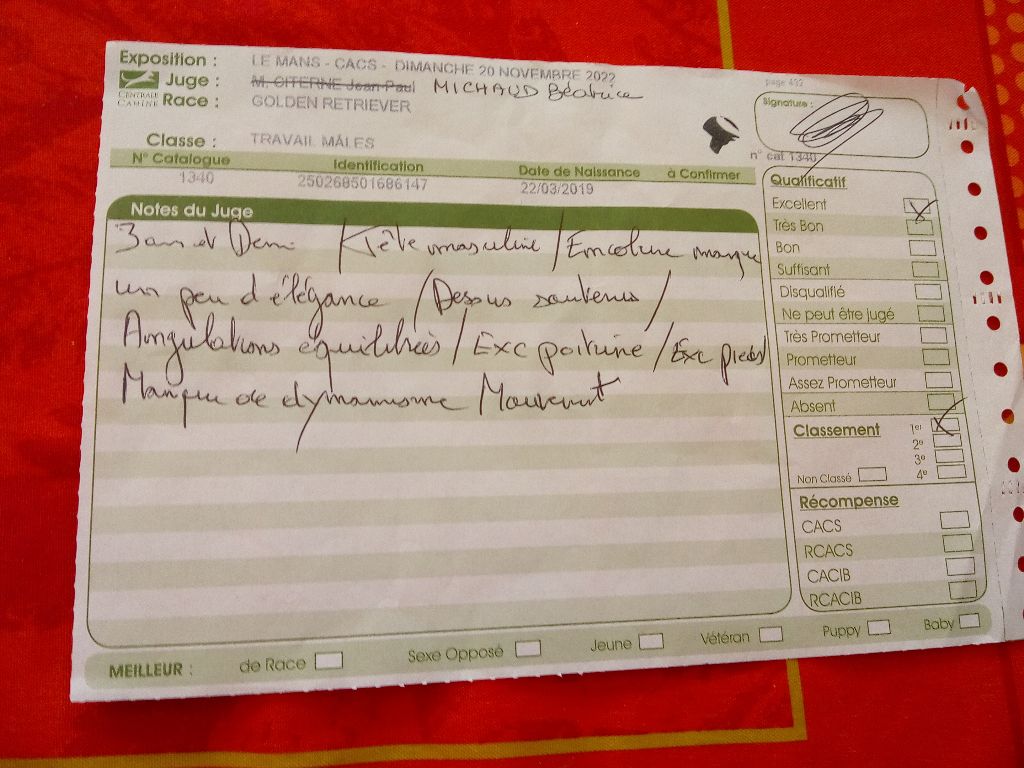 Exposition : LE MANS - CACS - DIMANCHE 20 NOVEMBRE 2022
Juge : M. CITERNE Jean Paul MICHAUD Béatrice
CENTRALE CANINE
Race : GOLDEN RETRIEVER
page 492
Signature :
Classe : TRAVAIL MÂLES
n° cat 1340
N° Catalogue Identification Date de Naissance à Confirmer
1340 250268501686147 22/03/2019
Notes du Juge
3 ans et Demi / Tête masculine / Encolure manque
un peu d'élégance / Dessus soutenus /
Angulations équilibrées / Exc poitrine / Exc pieds
Manque de dynamisme Mouvement
Qualificatif
Excellent
Très Bon
Bon
Suffisant
Disqualifié
Ne peut être jugé
Très Prometteur
Prometteur
Assez Prometteur
Absent
Classement 1er
2e
3e
Non Classé 4e
Récompense
CACS
RCACS
CACIB
RCACIB
MEILLEUR : de Race Sexe Opposé Jeune Vétéran Puppy Baby